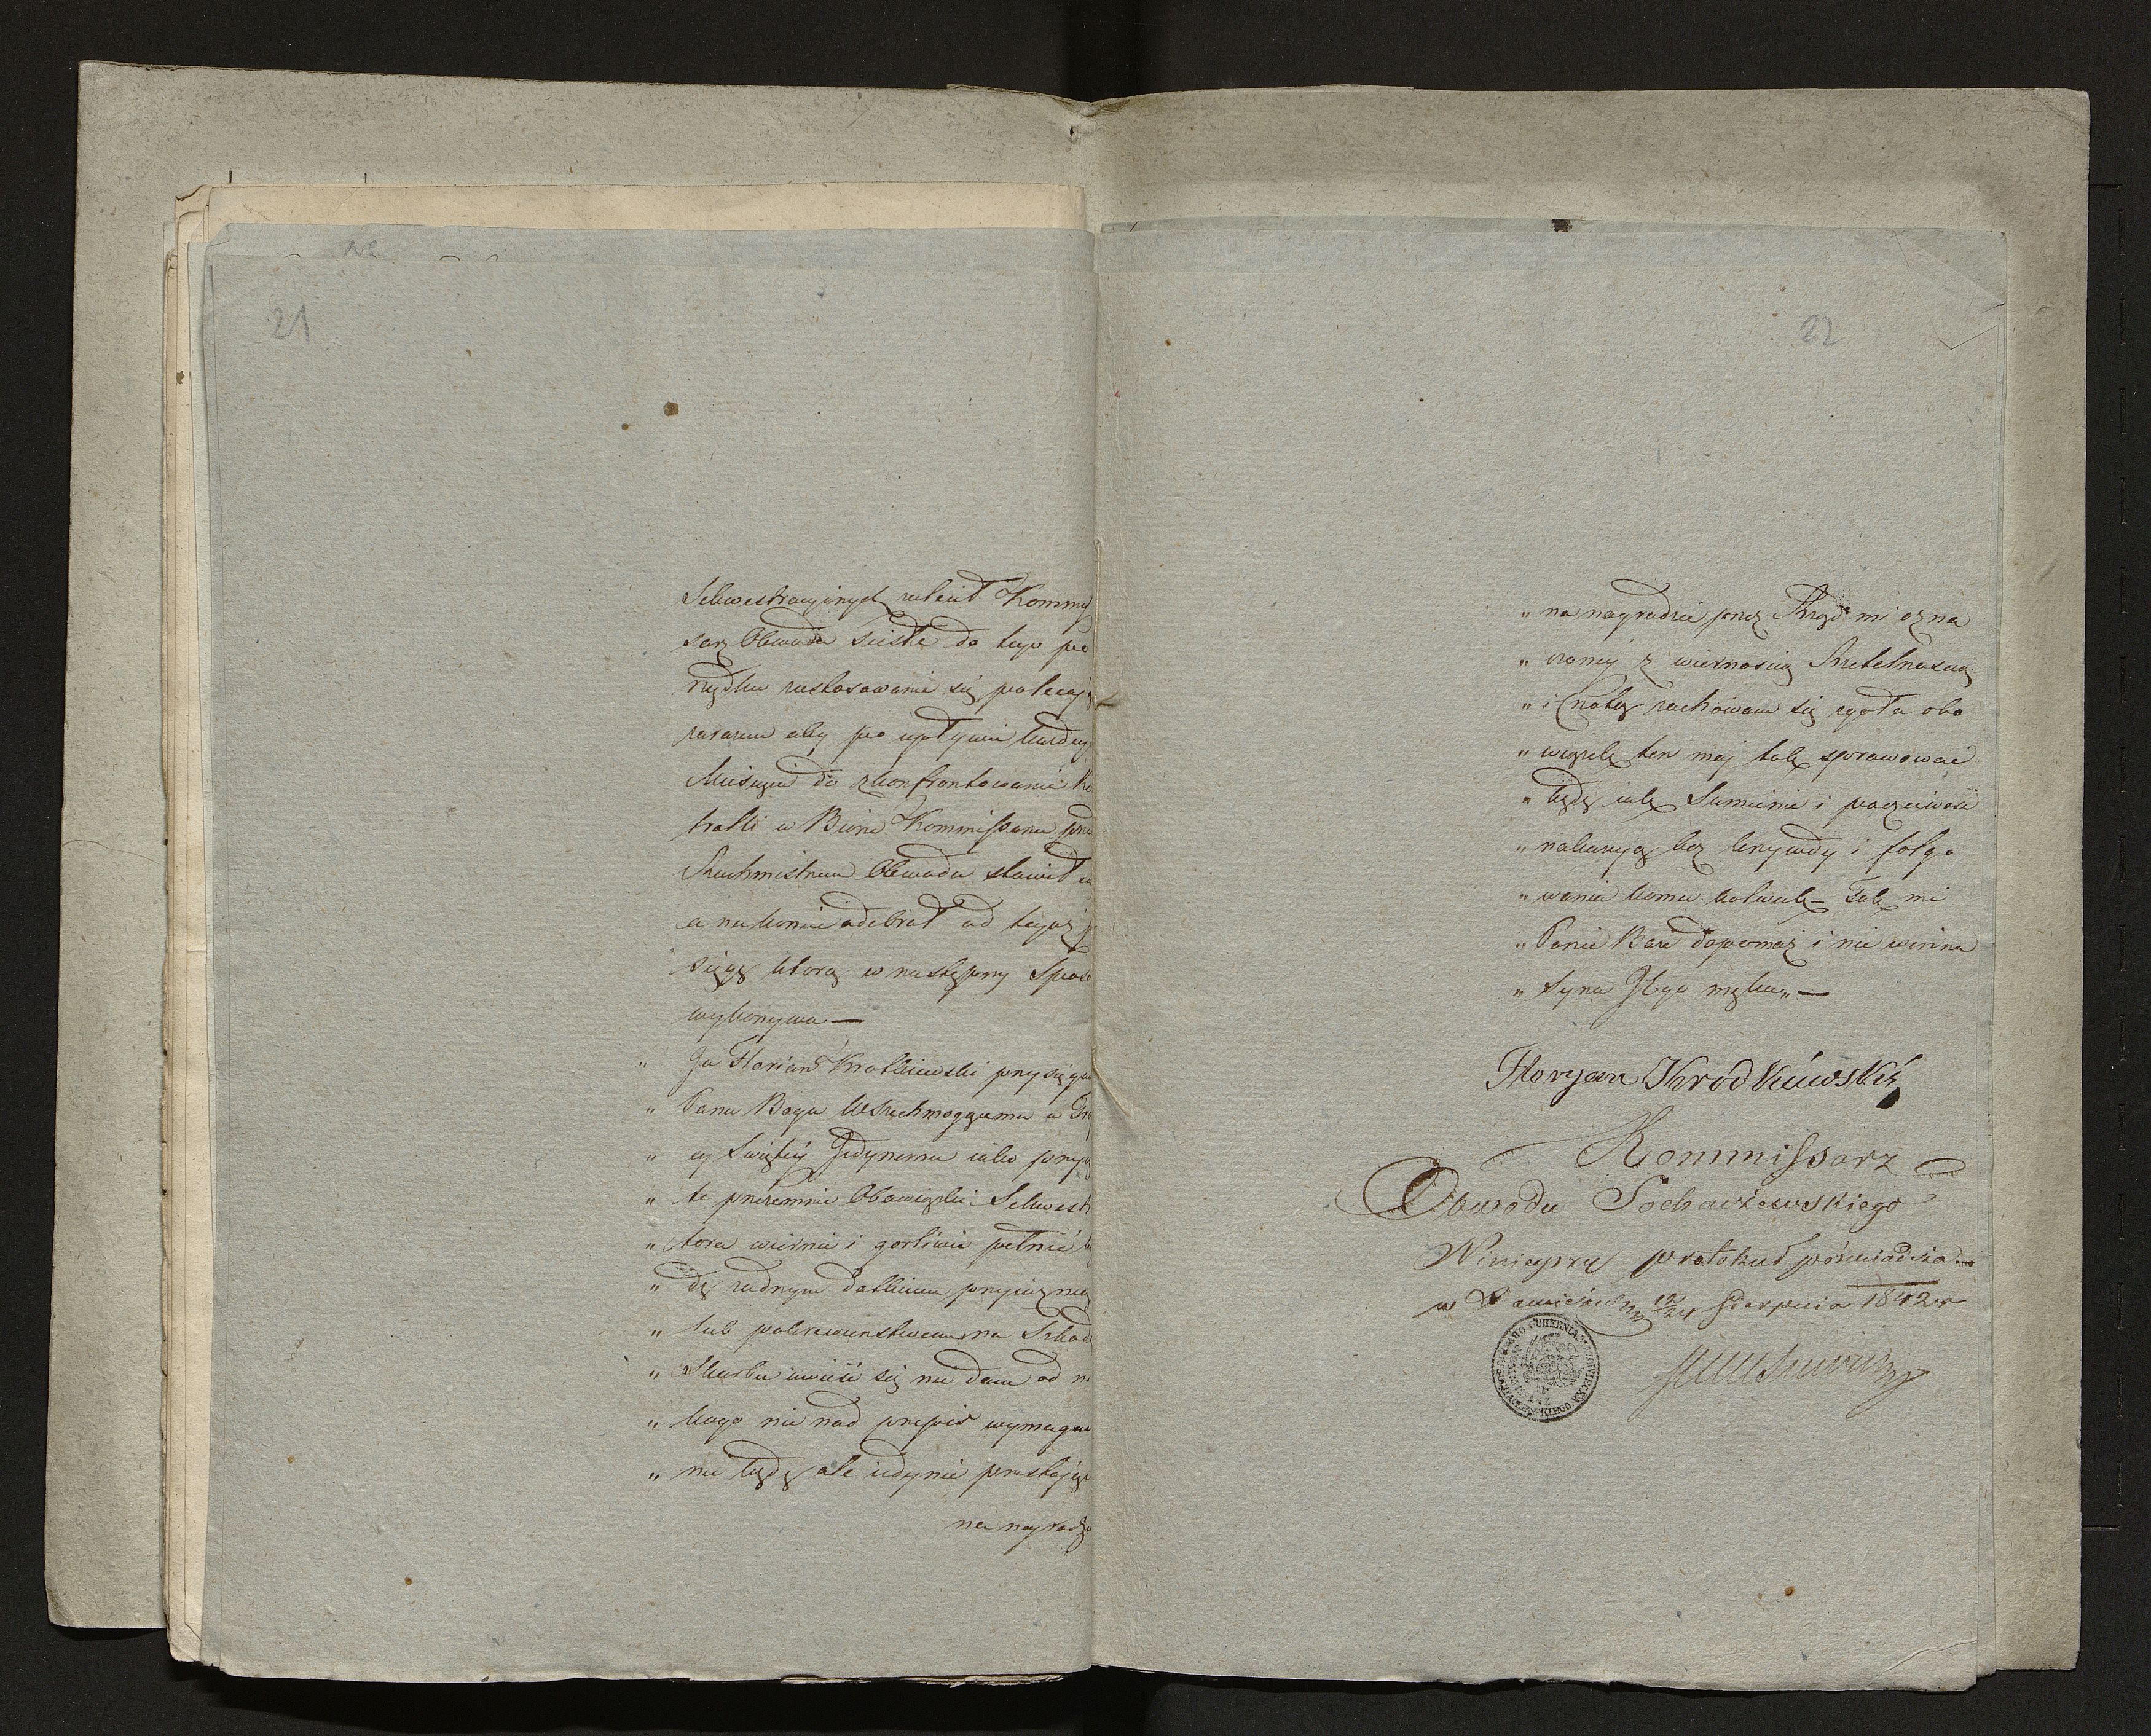 21
Sekwestracyinych zalecił Kommis
sarz Obwodu ściśle do tego po
rządku zastosowanie się polecając
zarazem aby po upływie każdego
Miesiąca do zkonfrontowania Kon
trolli w Biórze Kommissarza przed
Rachmistrzem Obwodu stawił się
a nakoniec odebrał od tegoż przy
sięgę którą w następny Sposób
wykonywa —
„ Ja Florian Krotkiewski przysięgam
„ Panu Bogu Wszechmogącemu w Tróy
„ cy Świętéy Jedynemu iako przyię
„ te przezemnie Obowiązki Sekwestra
„ tora wiernie i gorliwie pełnić bę
„ dę żadnym datkiem przyiaznią
„ lub pokrewieństwem na Szkodę
„ Skarbu uwieść się nie dam od ni
„ kogo nic nad przepis wymagać
„ nie będę ale iedynie przestając
na nagrodzie
22
„ na nagrodzie przez Rząd mi ozna
„ czonéy z wiernością Rzetelnością
„ i Cnotą zachowam się zgoła obo
„ wiązek ten mój tak sprawować
„ będę iak Sumienie i poczciwość
„ nakazują bez krzywdy i folgo
„ wania komu kolwiek – Tak mi
„ Panie Boże dopomóż i nie winna
„ Syna Jego męka„ —
Floryan Krodkiewski
Kommissarz
Obwodu Sochaczewskiego
Ninieyszy protokuł poświadcza
w Łowiczu 12/24 Sierpnia 1842 r